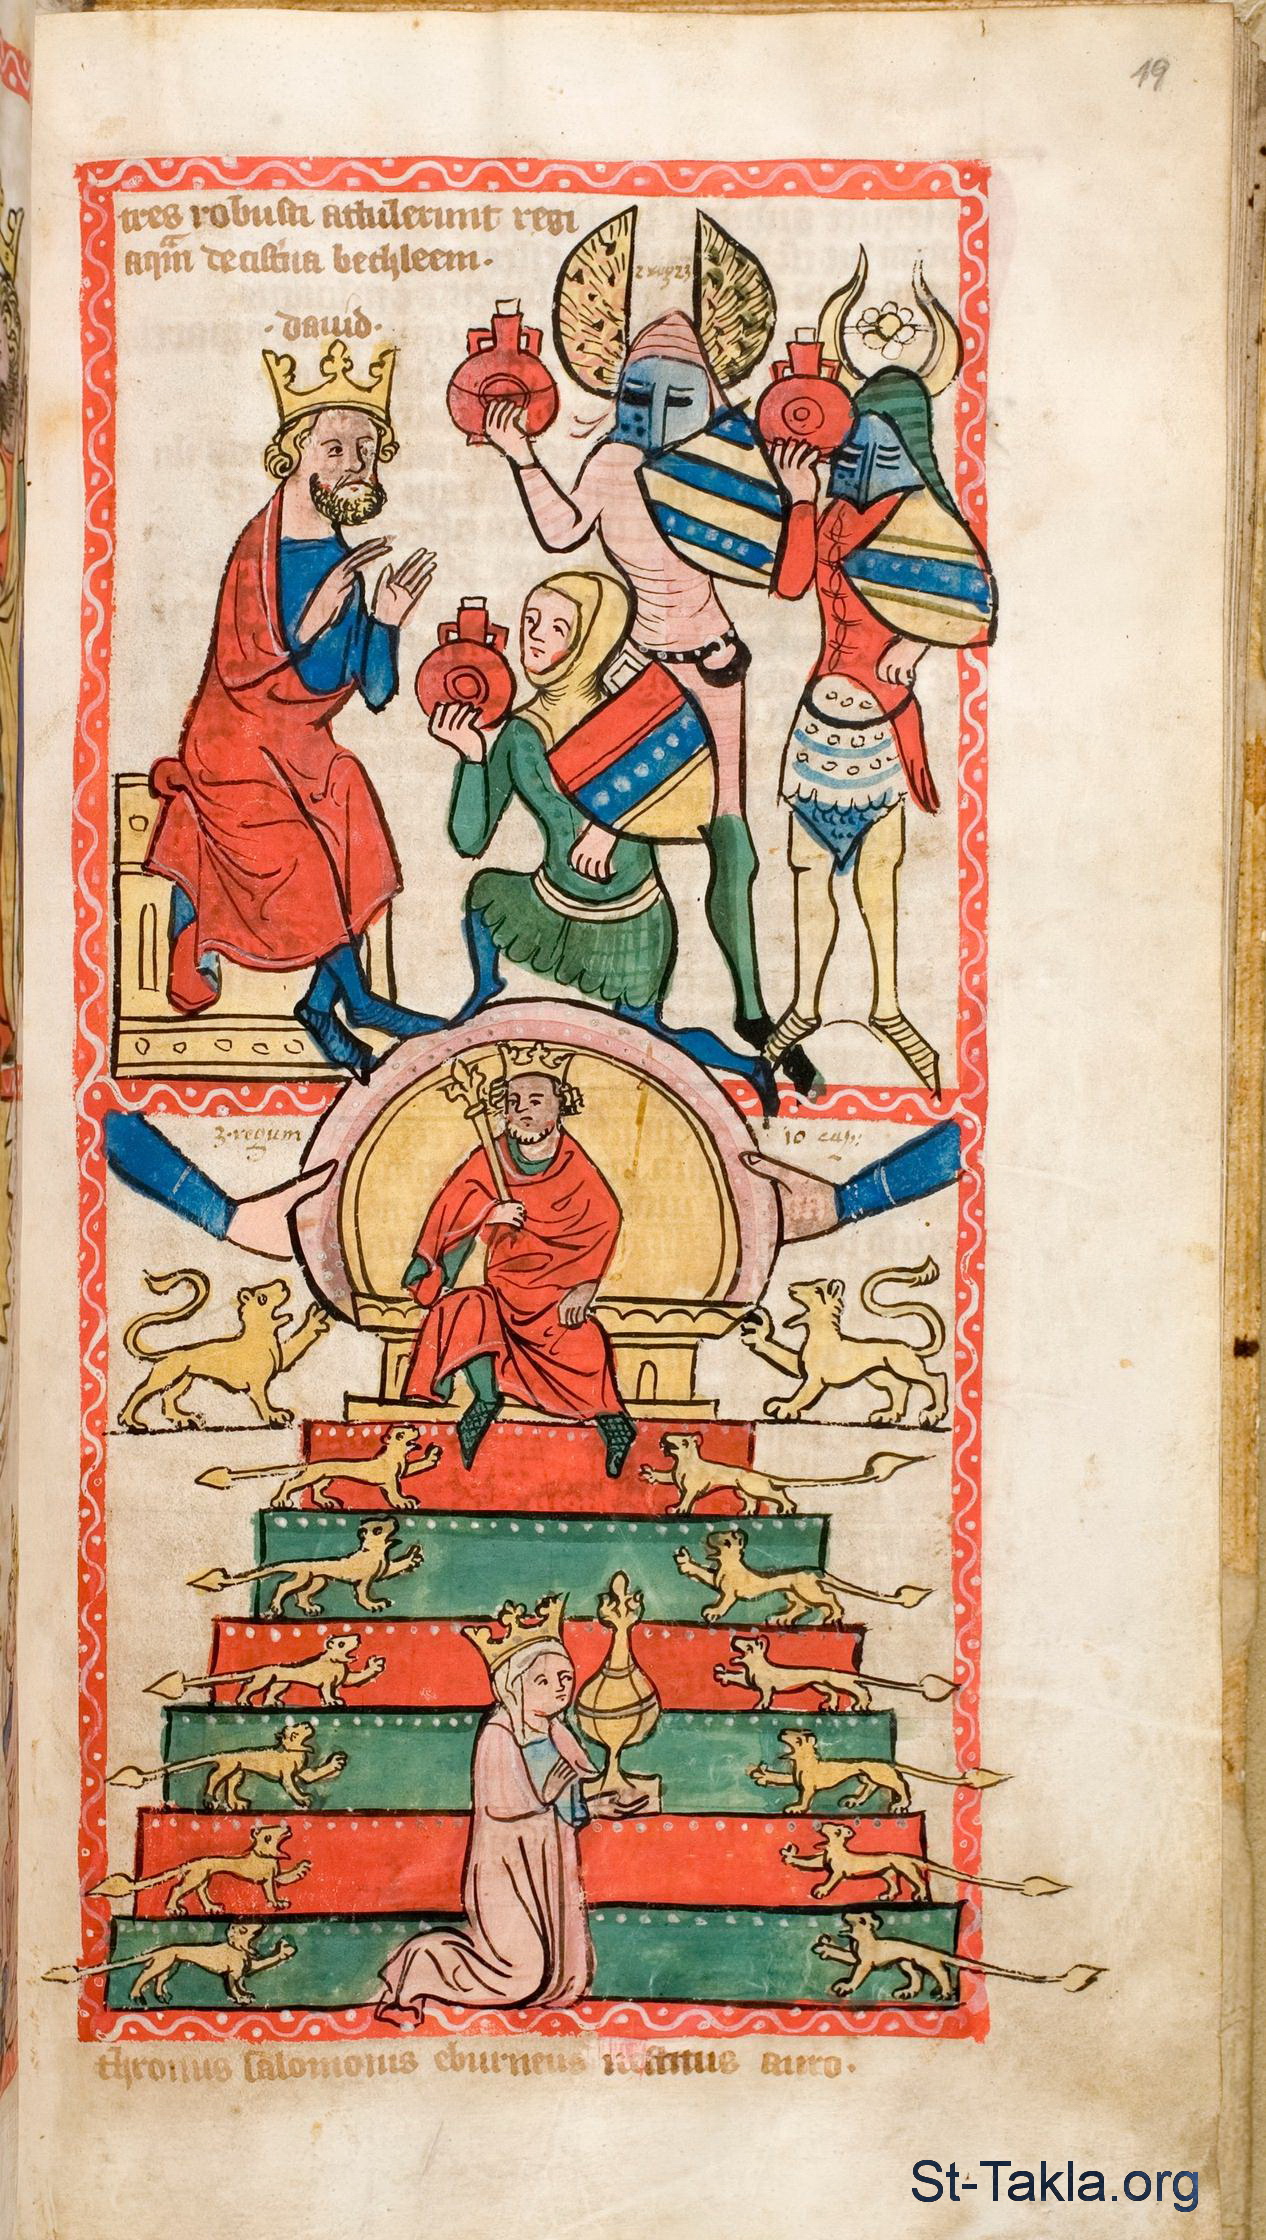 19
tres robusti attulerunt regi
aqām de cisterna bethleem.
2 reg 23
.dauid.
3. regum
10 cap:
thronus salomonis eburneus uestitus auro.
St-Takla.org